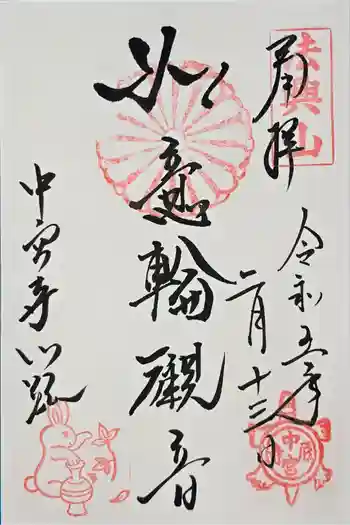 法興山
奉拝
令和五年
二月十三日
如意輪觀音
中宮寺門跡
中宮